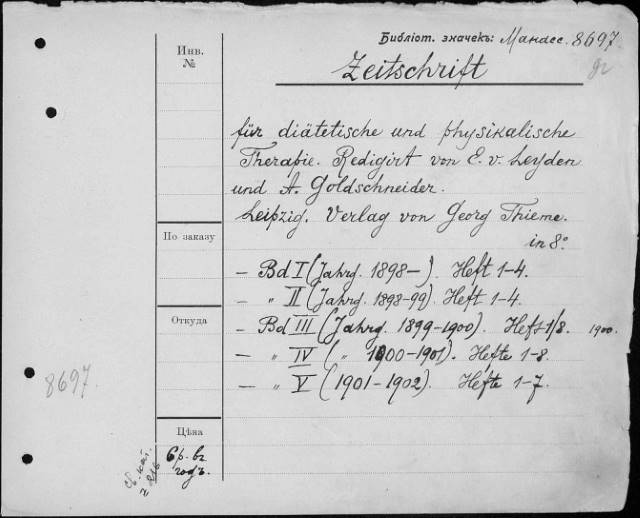 Библіот. значекъ: Манасс. 8697.
Инв.
№
Zeitschrift
für diätetische und physikalische
Therapie. Redigirt von E. v. Leyden
und A. Goldschneider.
Leipzig. Verlag von Georg Thieme.
in 8°.
По заказу
— Bd I (Jahrg. 1898—). Heft 1-4.
— " II (Jahrg. 1898-99). Heft 1-4.
Откуда
— Bd III (Jahrg. 1899-1900). Heft 1/8. 1900.
— " IV ( " 1900-1901). Hefte 1-8.
— " V (1901-1902). Hefte 1-7.
8697.
Цѣна
6 р. въ
годъ.